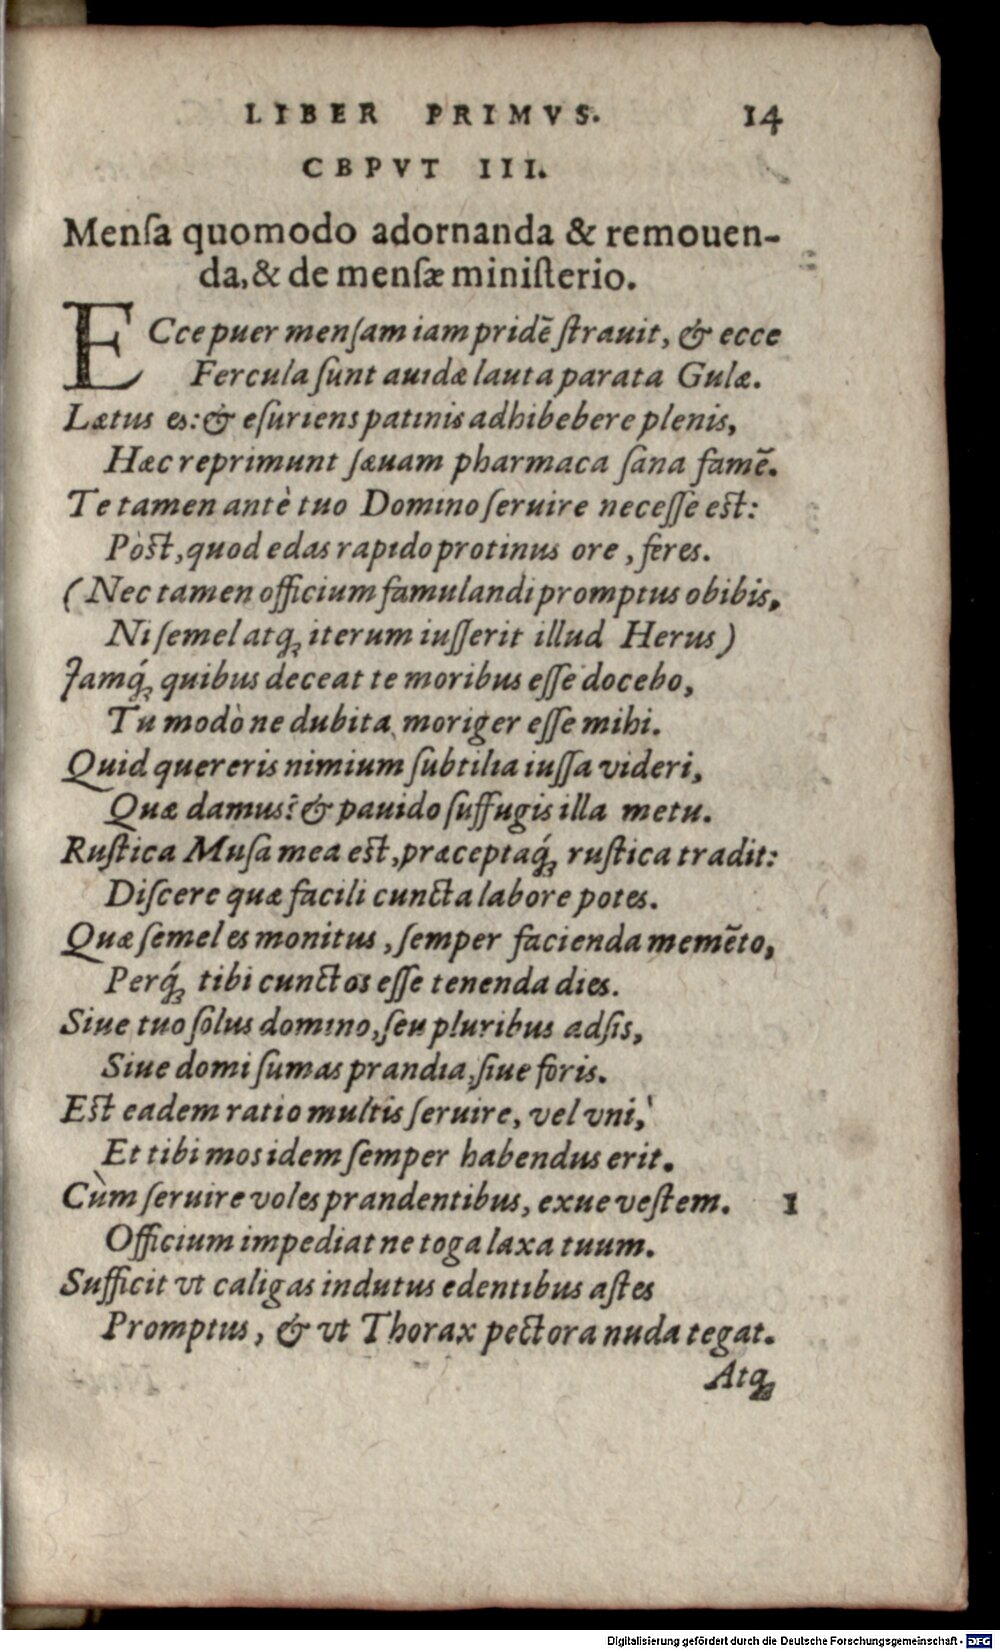 LIBER PRIMVS. 14
CBPVT III.
Menſa quomodo adornanda & remouen-
da, & de menſæ miniſterio.
ECce puer menſam iam pridē ſtrauit, & ecce
Fercula ſunt auidæ lauta parata Gulæ.
Lætus es: & eſuriens patinis adhibebere plenis,
Hæc reprimunt ſæuam pharmaca ſana famē.
Te tamen antè tuo Domino ſeruire neceſſe eſt:
Pòſt, quod edas rapido protinus ore, feres.
(Nec tamen officium famulandi promptus obibis,
Ni ſemel atq; iterum iuſſerit illud Herus)
Jamq́; quibus deceat te moribus eſſe docebo,
Tu modò ne dubita moriger eſſe mihi.
Quid quereris nimium ſubtilia iuſſa videri,
Quæ damus? & pauido ſuffugis illa metu.
Ruſtica Muſa mea eſt, præceptaq́; ruſtica tradit:
Diſcere quæ facili cuncta labore potes.
Quæ ſemel es monitus, ſemper facienda memēto,
Perq́; tibi cunctos eſſe tenenda dies.
Siue tuo ſolus domino, ſeu pluribus adſis,
Siue domi ſumas prandia, ſiue foris.
Eſt eadem ratio multis ſeruire, vel vni,
Et tibi mos idem ſemper habendus erit.
Cùm ſeruire voles prandentibus, exue veſtem. 1
Officium impediat ne toga laxa tuum.
Sufficit vt caligas indutus edentibus aſtes
Promptus, & vt Thorax pectora nuda tegat.
Atq;
Digitalisierung gefördert durch die Deutsche Forschungsgemeinschaft - DFG